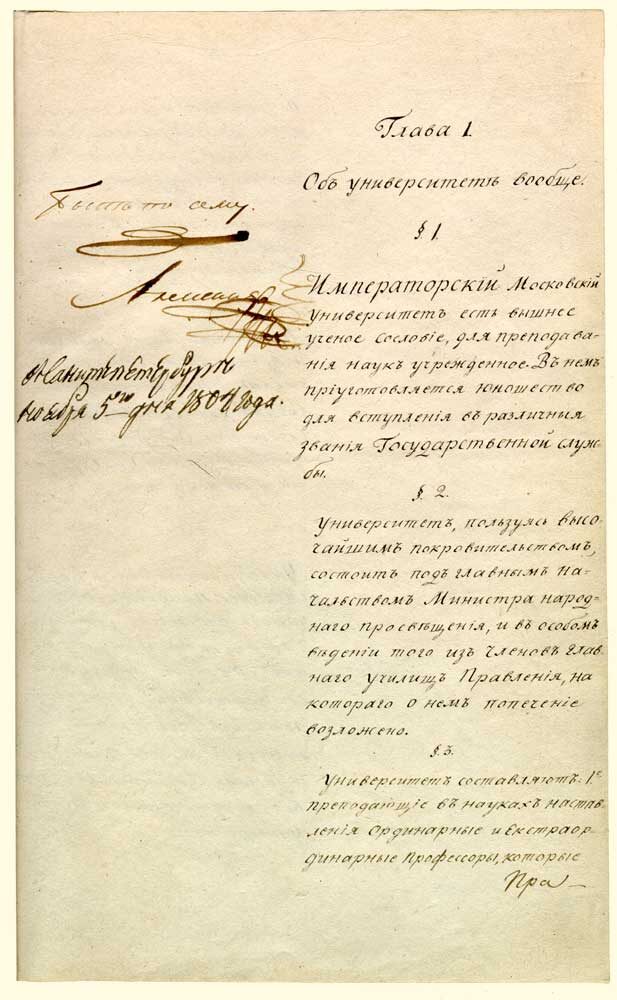 Глава I.
Объ университетѣ вообще.
§ 1.
Быть по сему.
Александръ
въ Санктъпетербургѣ
ноября 5го дня 1804 года.
Императорскій Московскій
Университетъ есть вышнее
ученое сословіе, для преподава-
нія наукъ учрежденное. Въ немъ
пріуготовляется юношество
для вступленія въ различныя
званія Государственной служ-
бы.
§ 2.
Университетъ, пользуясь высо-
чайшимъ покровительствомъ,
состоитъ подъ главнымъ на-
чальствомъ Министра народ-
наго просвѣщенія, и въ особомъ
вѣденіи того изъ членовъ глав-
наго училищъ Правленія, на
котораго о немъ попеченіе
возложено.
§. 3.
Университетъ составляютъ: 1е
преподающіе въ наукахъ настав-
ленія Ординарные и Екстраор-
динарные Профессоры, которые
Пра–